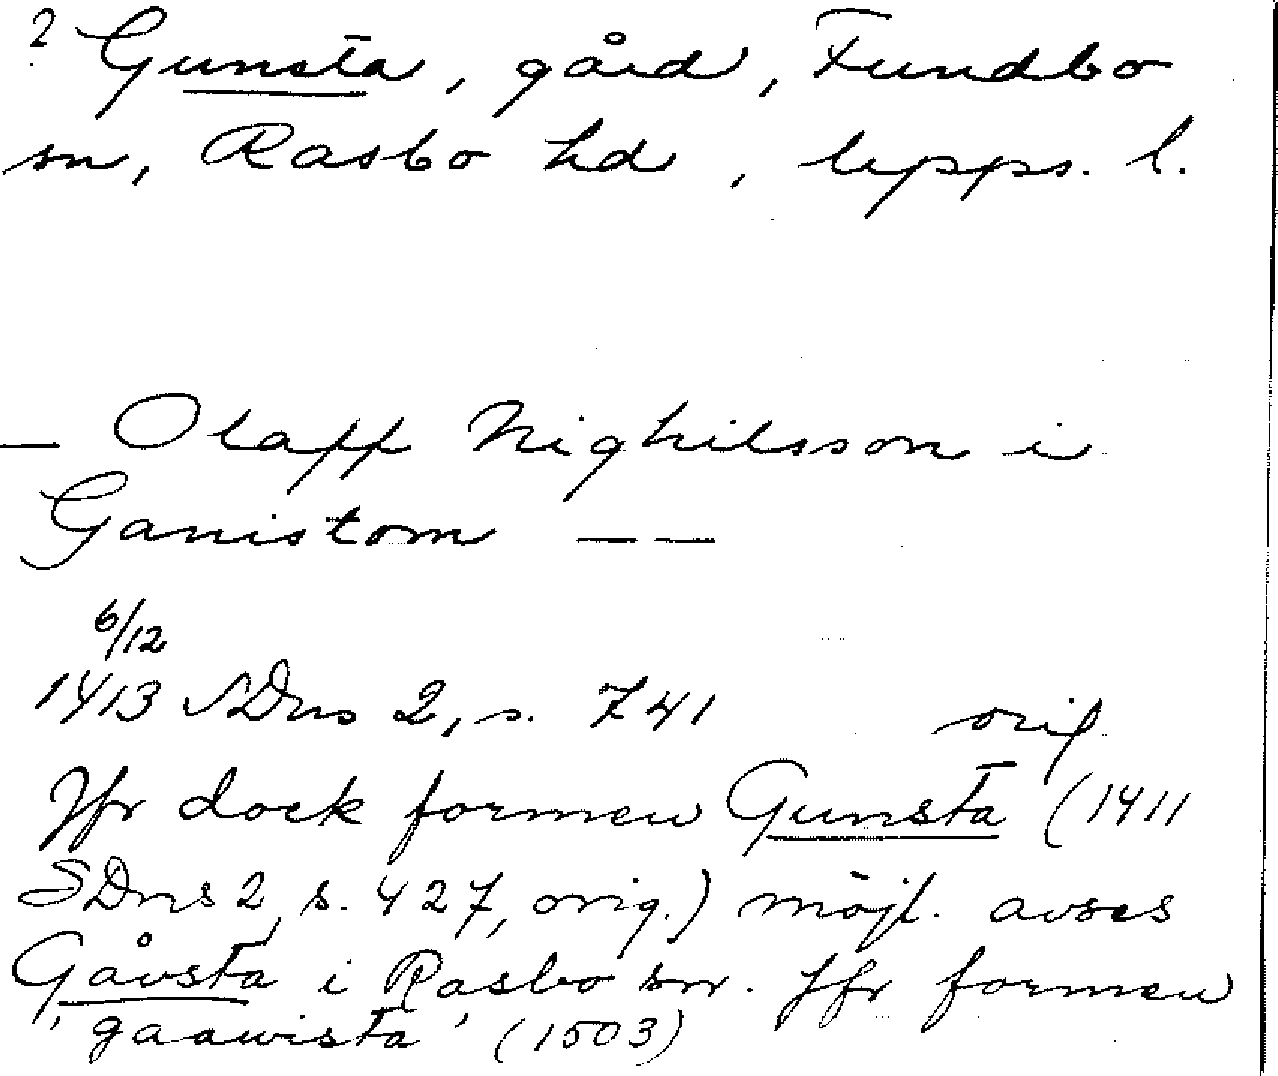 ? Gunsta, gård, Fundbo
sn, Rasbo hd, Upps. l.
— Olaff Nighilsson i
Ganistom — —
6/12
1413 SDns 2, s. 741 orig.
Jfr dock formen Gunsta (1411
SDns 2, s. 427, orig.) möjl. avses
Gåvsta i Rasbo sn. Jfr formen
'gaawista' (1503)